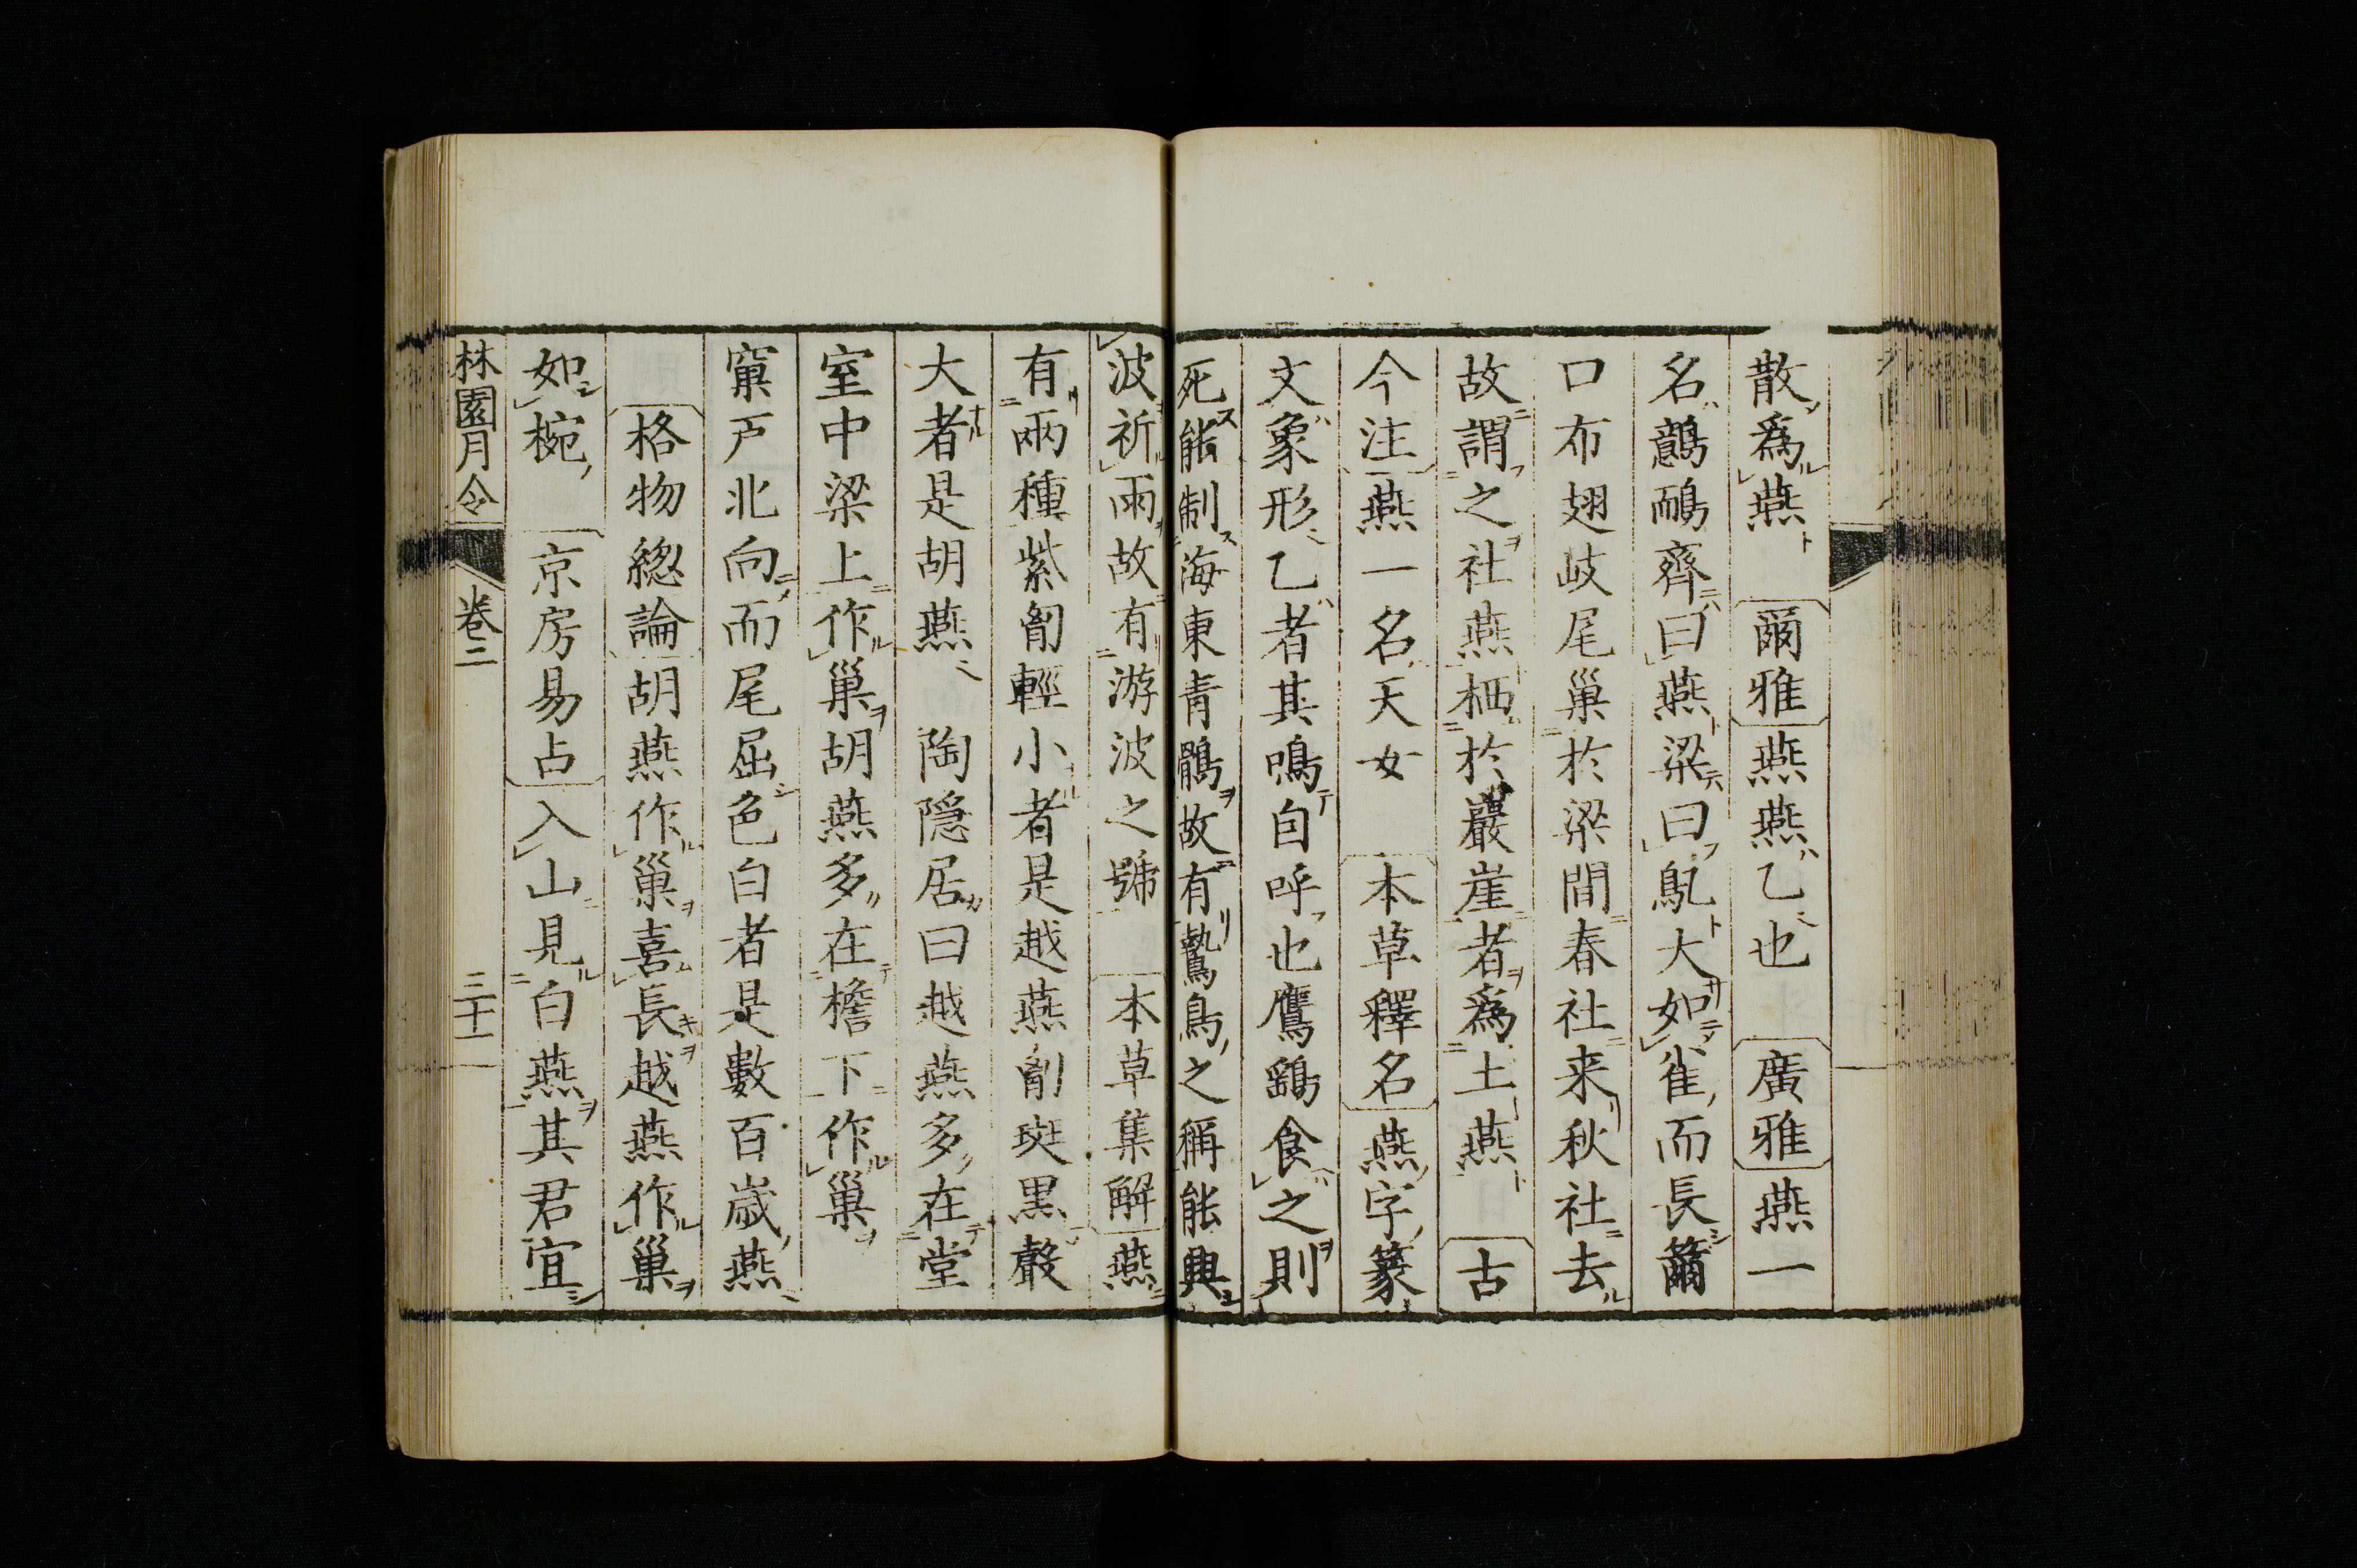 散爲燕　爾雅燕燕乙也　廣雅燕一
名鷾鴯齊曰燕梁曰鳦大如雀而長籋
口布翅岐尾巢於梁間春社来秋社去
故謂之社燕栖於巖崖者爲土燕　古
今注燕一名天女　本草釋名燕字篆
文象形乙者其鳴自呼也鷹鷂食之則
死能制海東青鶻故有鷙鳥之稱能興
波祈雨故有游波之號　本草集解燕
有兩種紫胷輕小者是越燕胷斑黒聲
大者是胡燕　陶隠居曰越燕多在堂
室中梁上作巢胡燕多在檐下作巢
窠戸北向而尾屈色白者是數百歳燕
格物總論胡燕作巢喜長越燕作巢
如椀　京房易占入山見白燕其君宜
林園月令　卷三　三十一